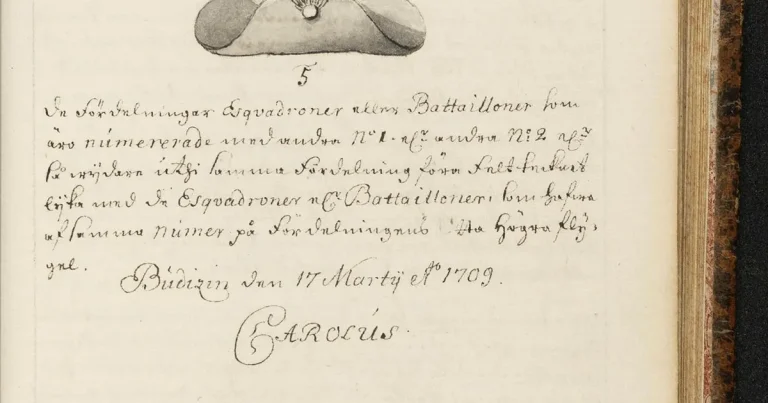 5
De Fördelningar Esqvadroner eller Battailloner som
äro numererade med andra N:o 1. elr andra N:o 2 elr
så wydare uthi samma Fördelning föra Felt-tecknet
lyka med de Esqvadroner elr Battailloner, som hafwa
af samma numer på Fördelningens Högra fly,
gel.
Budizin den 17 Martij Ao 1709.
CAROLUS.